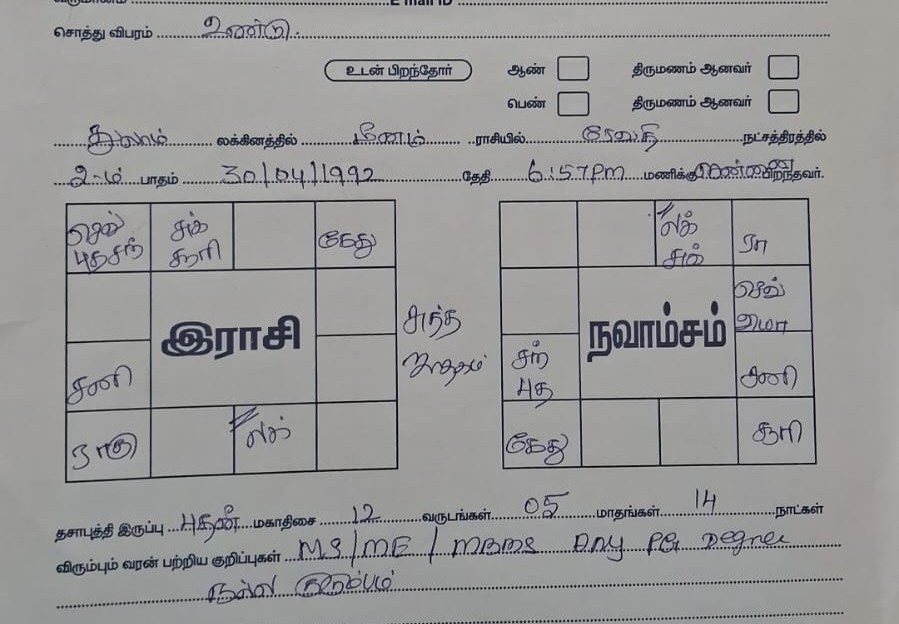 E mail ID
சொத்து விபரம் உண்டு.
உடன் பிறந்தோர் ஆண் திருமணம் ஆனவர்
பெண் திருமணம் ஆனவர்
துலாம் லக்கினத்தில் மீனம் ராசியில் ரேவதி நட்சத்திரத்தில்
2-ம் பாதம் 30/04/1992 தேதி 6:57PM மணிக்கு பிறந்தவர்.
செவ் சுக் கேது
புத சந் சூரி
இராசி
சனி
ராகு லக்
சுத்த
ஜாதகம்
லக் ரா
சுக்
செவ்
நவாம்சம்
சந் சனி
புத
கேது சூரி
தசாபுத்தி இருப்பு புதன் மகாதிசை 12 வருடங்கள் 05 மாதங்கள் 14 நாட்கள்
விரும்பும் வரன் பற்றிய குறிப்புகள் MS/ME/MBBS Any PG Degree
நல்ல குடும்பம்